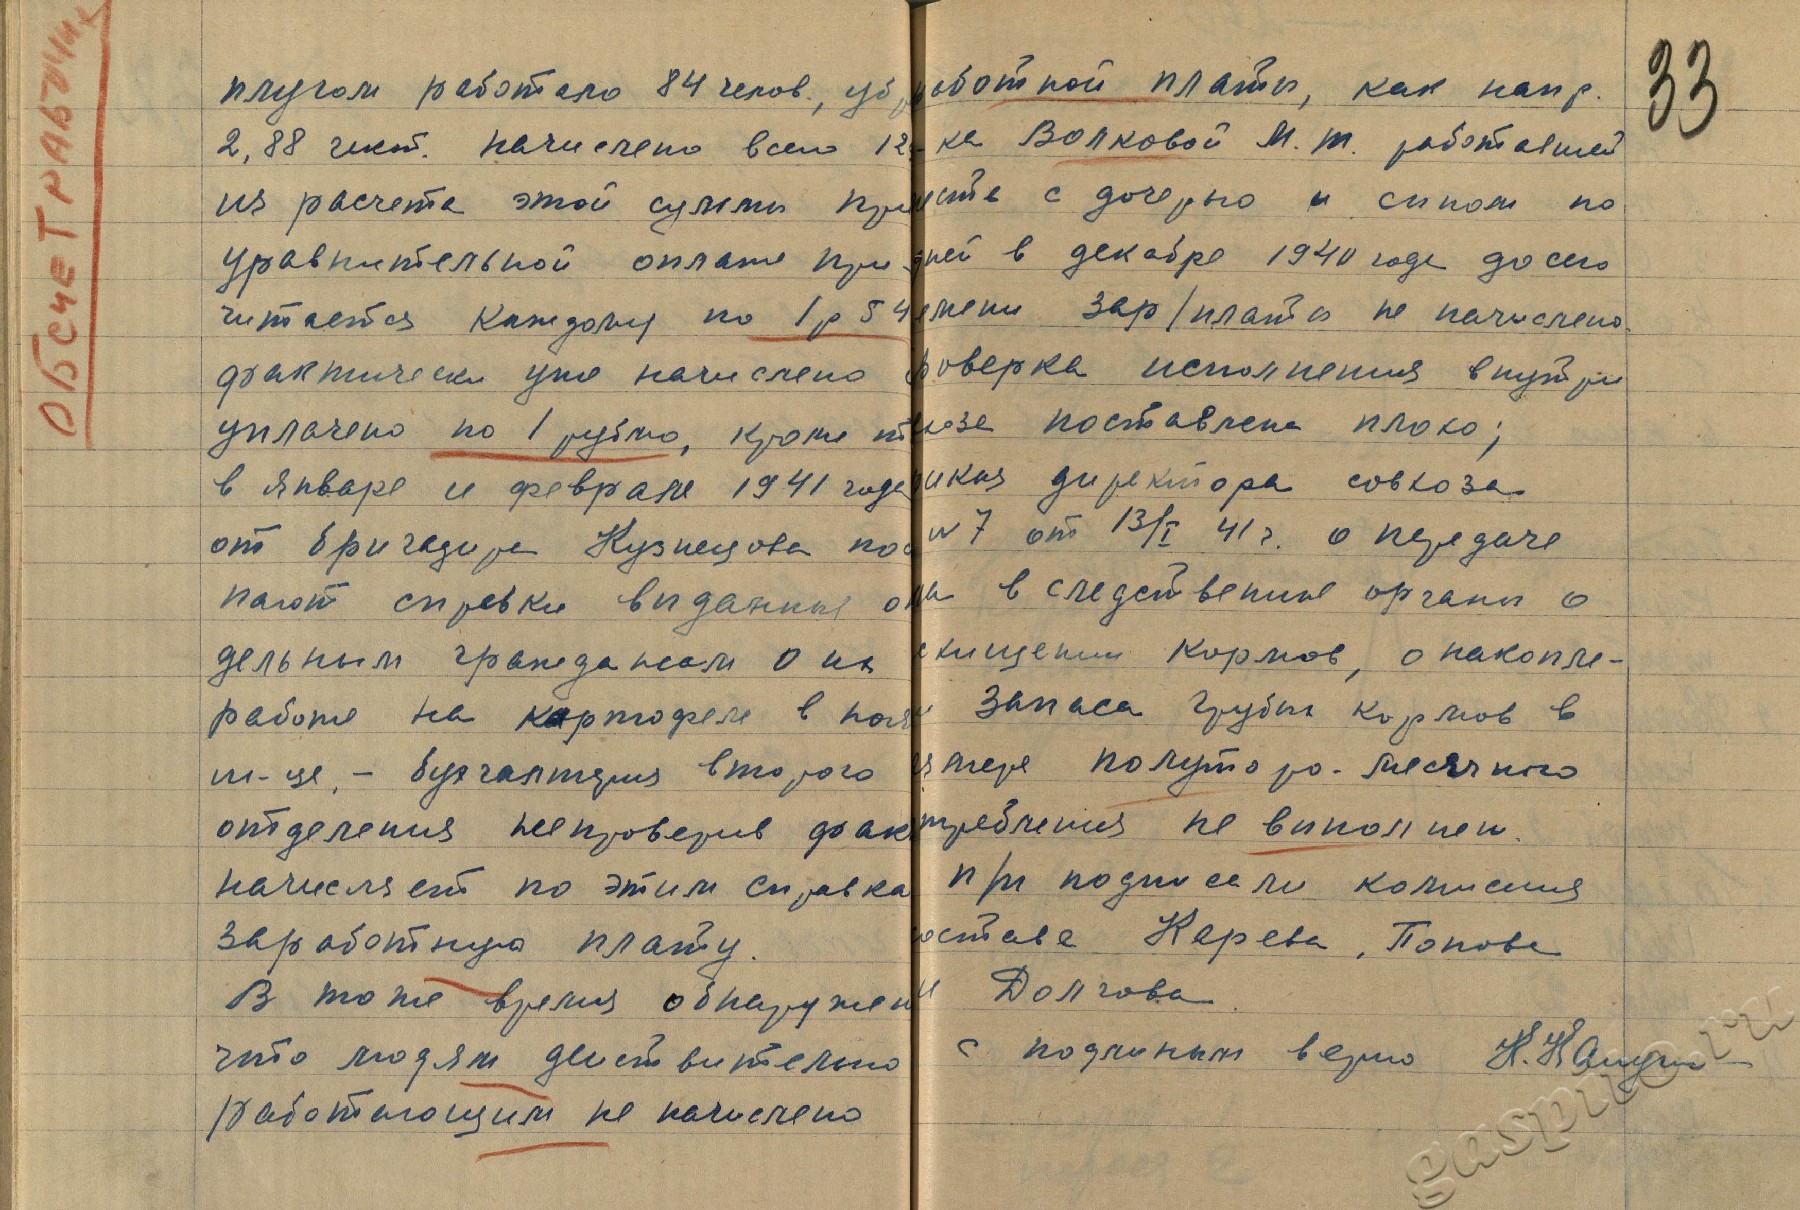 ОБСЧЕТ РАБОЧИХ
плугом работало 84 челов., убр
2,88 гект. начислено всего 12
из расчета этой суммы при
уравнительной оплате при
читается каждому по 1 р 54
фактически уже начислено
уплачено по 1 рублю, кроме т
в январе и феврале 1941 года
от бригадира Кузнецова пос
пают справки выданные от
дельным гражданам о их
работе на картофеле в нояб
м-це, – бухгалтерия второго
отделения непроверив фак
начисляет по этим справка
заработную плату.
В тоже время обнаружен
что людям действительно
работающим не начислено
33
аботной платы, как напр.
ка Волковой М. Т. работавшей
есте с дочерью и сыном по
дней в декабре 1940 года до сего
емени зар/платы не начислено.
роверка исполнения внутри
хозе поставлена плохо;
иказ директора совхоза
№7 от 13/I 41 г. о передаче
ла в следственные органы о
схищении кормов, о накопле-
запаса грубых кормов в
полуторо-месячного
требления не выполнен.
п/п подписали комиссия
оставе Карева, Попова
и Долгова
с подлиным верно
gaspiko.ru